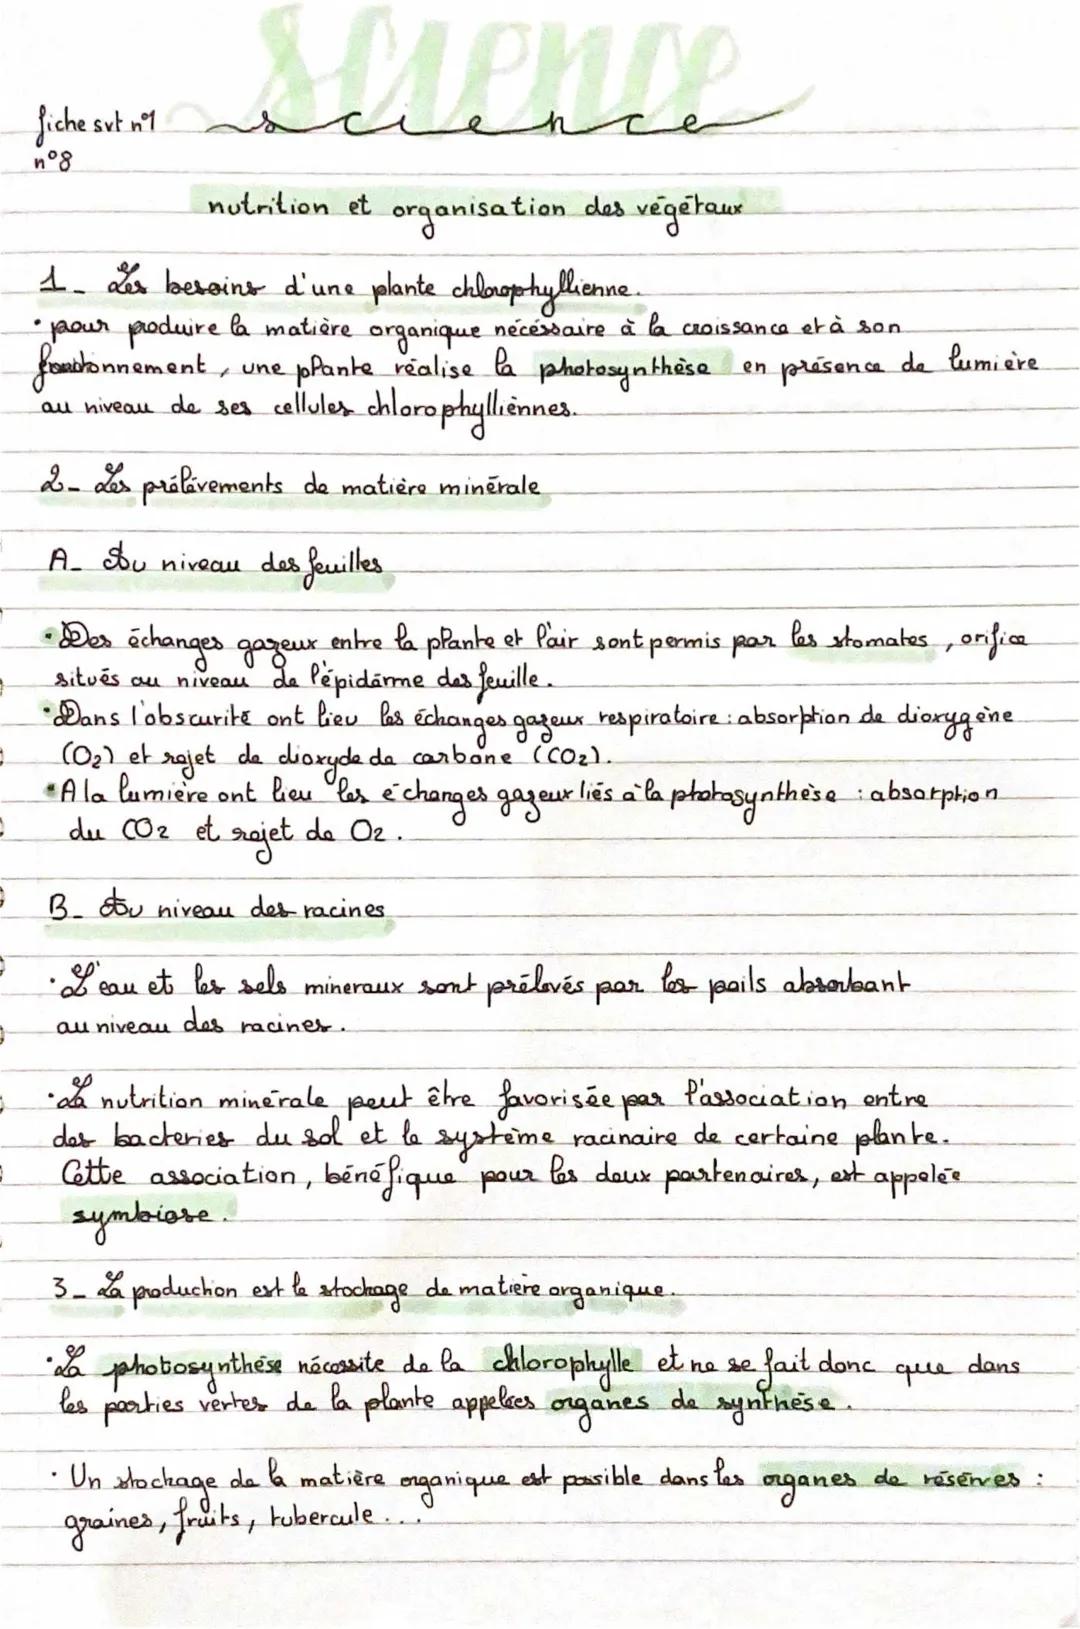 science
fiche svt n°1
science
n°8
nutrition et organisation des végétaux
1_ Les besoins d'une plante chlorophyllienne.
• pour produire la matière organique nécéssaire à la croissance et à son
fonctionnement, une plante réalise la photosynthèse en présence de lumière
au niveau de ses cellules chlorophylliènnes.
2_ Les prélèvements de matière minérale
A_ Au niveau des feuilles
• Des échanges gazeux entre la plante et l'air sont permis par les stomates, orifice
situés au niveau de l'épidérme des feuille.
• Dans l'obscurité ont lieu les échanges gazeux respiratoire : absorption de dioxygène
(O2) et rejet de dioxyde de carbone (CO2).
• A la lumière ont lieu les échanges gazeux liés à la photosynthèse : absorption
du CO2 et rejet de O2.
B_ Au niveau des racines
• L'eau et les sels mineraux sont prélevés par les poils absorbant
au niveau des racines.
• La nutrition minérale peut être favorisée par l'association entre
des bacteries du sol et le système racinaire de certaine plante.
Cette association, bénéfique pour les deux partenaires, est appelée
symbiose.
3_ La production est le stockage de matière organique.
• La photosynthése nécessite de la chlorophylle et ne se fait donc que dans
les parties vertes de la plante appelées organes de synthèse.
• Un stockage de la matière organique est possible dans les organes de réserves :
graines, fruits, tubercule ...